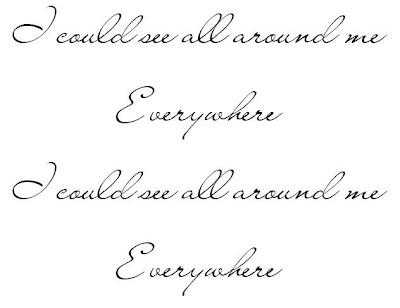 I could see all around me
Everywhere
I could see all around me
Everywhere